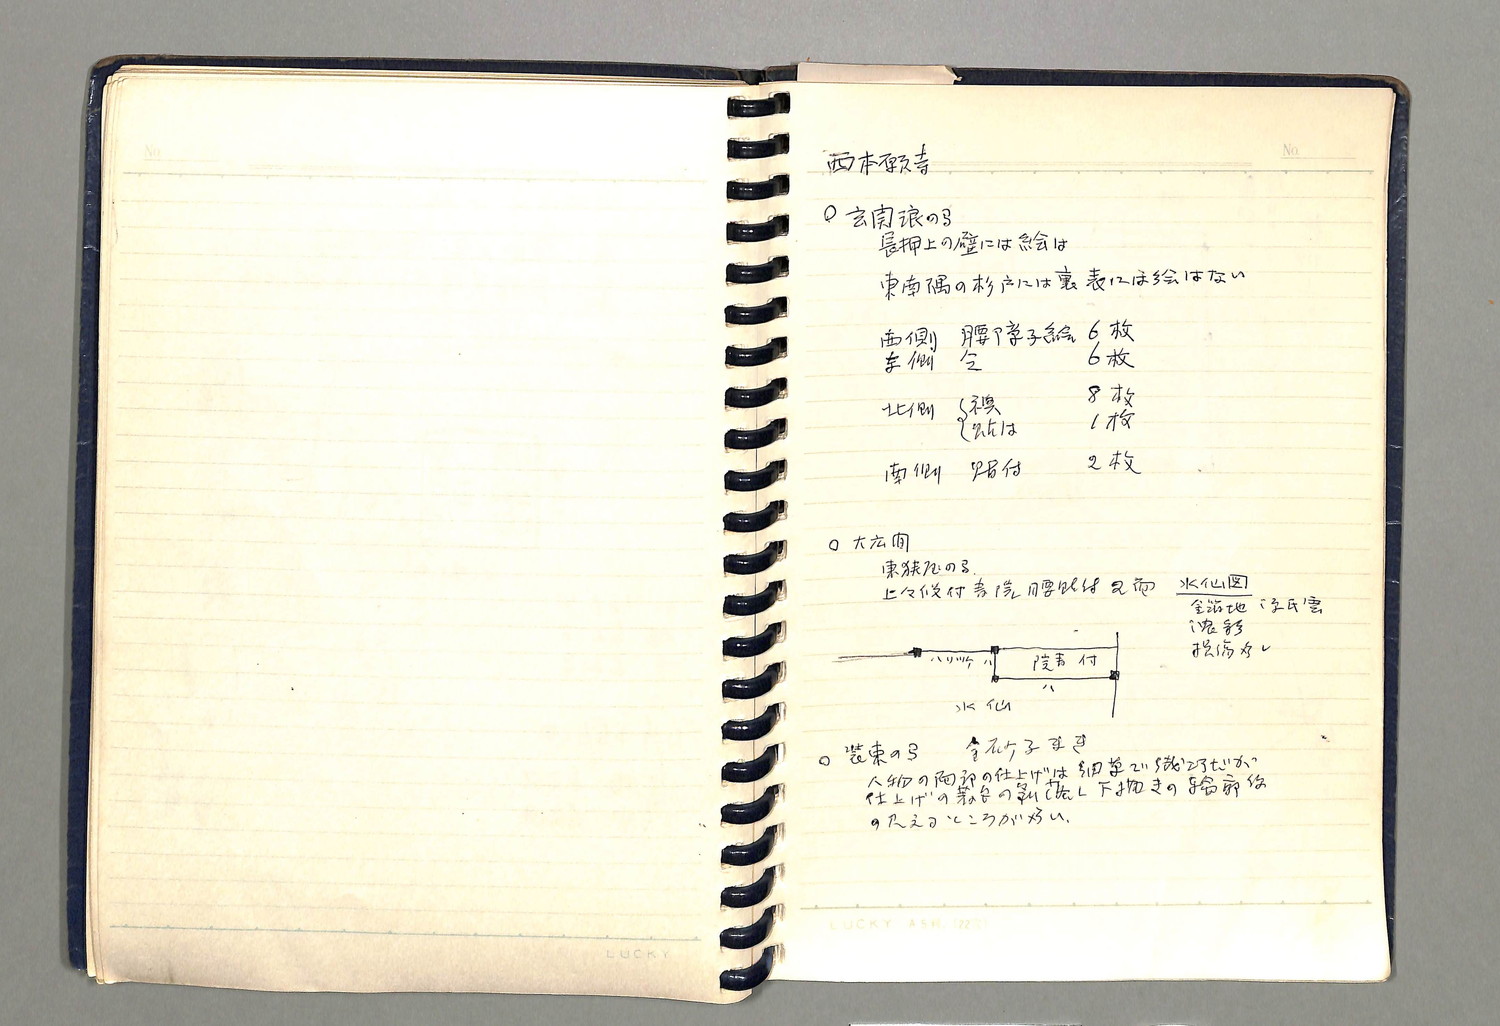 No.
西本願寺
No.
○ 玄関浪の間
長押上の壁には絵は
東南隅の杉戸には裏表には絵はない
西側 腰障子絵 6枚
東側 仝 6枚
北側 襖 8枚
貼付 1枚
南側 貼付 2枚
○ 大広間
東狭屋の間
上々段付書院腰貼付
水仙図
金箔地 源氏雲
濃彩
損傷多し
ハリツケ ハ
院書付
ハ
水仙
○ 装束の間 金砂子まき
人物の陶部の仕上げは細筆で
仕上げの の 下描きの輪郭線
の見えるところが多い。
LUCKY
LUCKY